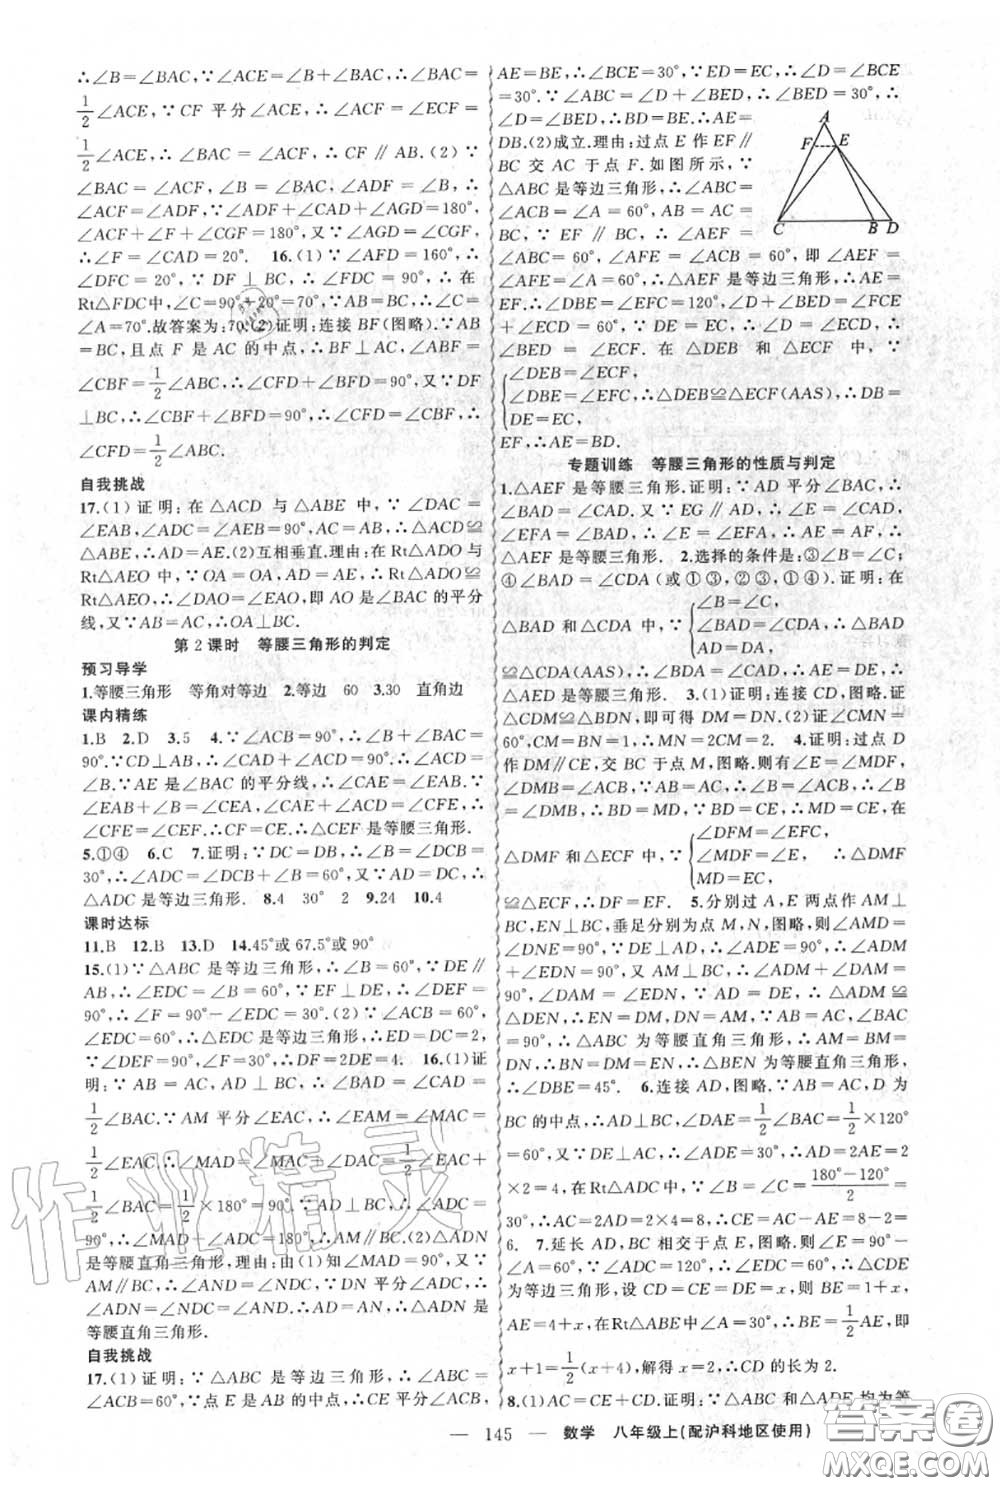 ∴∠B=∠BAC,∵∠ACE=∠B+∠BAC,∴∠BAC=
1/2∠ACE,∵CF 平分∠ACE,∴∠ACF=∠ECF=
1/2∠ACE,∴∠BAC=∠ACF,∴CF∥AB.(2)∵
∠BAC=∠ACF,∠B=∠BAC,∠ADF=∠B,∴
∠ACF=∠ADF,∵∠ADF+∠CAD+∠AGD=180°,
∠ACF+∠F+∠CGF=180°,又∵∠AGD=∠CGF,
∴∠F=∠CAD=20°. 16.(1)∵∠AFD=160°,∴
∠DFC=20°,∵DF⊥BC,∴∠FDC=90°,∴在
Rt△FDC中,∠C=90°-20°=70°,∵AB=BC,∴∠C=
∠A=70°.故答案为:70;(2)证明:连接 BF(图略).∵AB
=BC,且点 F 是 AC 的中点,∴BF⊥AC,∠ABF=
∠CBF=1/2∠ABC,∴∠CFD+∠BFD=90°,又∵DF
⊥BC,∴∠CBF+∠BFD=90°,∴∠CFD=∠CBF,∴
∠CFD=1/2∠ABC.
自我挑战
17.(1)证明:在△ACD 与△ABE 中,∵∠DAC=
∠EAB,∠ADC=∠AEB=90°,AC=AB,∴△ACD≌
△ABE,∴AD=AE.(2)互相垂直.理由:在 Rt△ADO 与
Rt△AEO 中,∵OA=OA,AD=AE,∴Rt△ADO≌
Rt△AEO,∴∠DAO=∠EAO,即 AO 是∠BAC 的平分
线,又∵AB=AC,∴AO⊥BC.
第 2 课时 等腰三角形的判定
预习导学
1.等腰三角形 等角对等边 2.等边 60 3.30 直角边
课内精练
1.B 2.D 3.5 4.∵∠ACB=90°,∴∠B+∠BAC=
90°.∵CD⊥AB,∴∠CAD+∠ACD=90°,∴∠ACD=
∠B.∵AE 是∠BAC 的平分线,∴∠CAE=∠EAB.∵
∠EAB+∠B=∠CEA,∠CAE+∠ACD=∠CFE,∴
∠CFE=∠CEF,∴CF=CE,∴△CEF 是等腰三角形.
5.①④ 6.C 7.证明:∵DC=DB,∴∠B=∠DCB=
30°,∴∠ADC=∠B+∠DCB=60°,又∵AD=DC,
∴△ADC 是等边三角形. 8.4 30° 2 9.24 10.4
课时达标
11.B 12.B 13.D 14.45°或 67.5°或 90°
15.(1)∵△ABC 是等边三角形,∴∠B=60°,∵DE∥
AB,∴∠EDC=∠B=60°,∵EF⊥DE,∴∠DEF=
90°,∴∠F=90°-∠EDC=30°.(2)∵∠ACB=60°,
∠EDC=60°,∴△EDC 是等边三角形,∴ED=DC=2,
∵∠DEF=90°,∠F=30°,∴DF=2DE=4. 16.(1)证
明:∵AB=AC,AD⊥BC,∴∠BAD=∠CAD=
1/2∠BAC.∵AM 平分∠EAC,∴∠EAM=∠MAC=
1/2∠EAC,∴∠MAD=∠MAC+∠DAC=1/2∠EAC+
1/2∠BAC=1/2×180°=90°.∵AD⊥BC,∴∠ADC=
90°,∴∠MAD+∠ADC=180°,∴AM∥BC.(2)△ADN
是等腰直角三角形,理由:由(1)知∠MAD=90°,∵
AM∥BC,∴∠AND=∠NDC,∵DN 平分∠ADC,∴
∠ADN=∠NDC=∠AND.∴AD=AN,∴△ADN 是
等腰直角三角形.
自我挑战
17.(1)证明:∵△ABC 是等边三角形,∴∠ABC=
∠ACB=60°,∵E 是 AB 的中点,∴CE 平分∠ACB,
AE=BE,∴∠BCE=30°,∵ED=EC,∴∠D=∠BCE
=30°.∵∠ABC=∠D+∠BED,∴∠BED=30°,∴
∠D=∠BED,∴BD=BE.∴AE=
DB.(2)成立.理由:过点 E 作 EF∥
BC 交 AC 于点 F.如图所示,∵
△ABC 是等边三角形,∴∠ABC=
∠ACB=∠A=60°,AB=AC=
BC,∵EF∥BC,∴∠AEF=
∠ABC=60°,∠AFE=∠ACB=60°,即∠AEF=
∠AFE=∠A=60°,∴△AEF 是等边三角形,∴AE=
EF=AF,∴∠DBE=∠EFC=120°,∠D+∠BED=∠FCE
+∠ECD=60°,∵DE=EC,∴∠D=∠ECD,∴
∠BED=∠ECF.在△DEB 和△ECF 中,∵
∠DEB=∠ECF,
∠DBE=∠EFC,∴△DEB≌△ECF(AAS),∴DB=
DE=EC,
EF,∴AE=BD.
A
F
E
C
B
D
专题训练 等腰三角形的性质与判定
1.△AEF 是等腰三角形.证明:∵AD 平分∠BAC,∴
∠BAD=∠CAD.又∵EG∥AD,∴∠E=∠CAD,
∠EFA=∠BAD,∴∠E=∠EFA,∴AE=AF,∴
△AEF 是等腰三角形. 2.选择的条件是:③∠B=∠C;
④∠BAD=∠CDA(或①③,②③,①④).证明:在
∠B=∠C,
△BAD 和△CDA 中,∵ ∠BAD=∠CDA, ∴△BAD
AD=DA,
≌△CDA(AAS),∴∠BDA=∠CAD,∴AE=DE,∴
△AED 是等腰三角形. 3.(1)证明:连接 CD,图略.证
△CDM≌△BDN,即可得 DM=DN.(2)证∠CMN=
60°,CM=BN=1,∴MN=2CM=2. 4.证明:过点 D
作 DM∥CE,交 BC 于点 M,图略.则有∠E=∠MDF,
∠DMB=∠ACB,∵AB=AC,∴∠B=∠ACB,∴∠B=
∠DMB,∴BD=MD,∵BD=CE,∴MD=CE,在
∠DFM=∠EFC,
△DMF 和△ECF 中,∵ ∠MDF=∠E, ∴△DMF
MD=CE,
≌△ECF,∴DF=EF. 5.分别过 A,E 两点作 AM⊥
BC,EN⊥BC,垂足分别为点 M,N,图略,则∠AMD=
∠DNE=90°,∵AD⊥DE,∴∠ADE=90°,∠ADM+
∠EDN=90°,又 AM⊥BC,∴∠ADM+∠DAM=
90°,∠DAM=∠EDN,∵AD=DE,∴△DAM≌
△DEN,∴EN=DM,AM=DN,∵AB=AC,∠BAC=
90°,∴△ABC 为等腰直角三角形,∴AM=BM=
DN,∴BN=DM=EN,∴△BEN 为等腰直角三角形,
∴∠DBE=45°. 6.连接 AD,图略,∵AB=AC,D 为
BC 的中点,∴AD⊥BC,∠DAE=1/2∠BAC=1/2×120°
=60°,又∵DE⊥AC,∴∠ADE=30°,∴AD=2AE=2
×2=4,在 Rt△ADC 中,∵∠B=∠C=(180°-120°)/2=
30°,∴AC=2AD=2×4=8,∴CE=AC-AE=8-2=
6. 7.延长 AD,BC 相交于点 E,图略,则∠E=90°-
∠A=60°,∵∠ADC=120°,∴∠EDC=60°,∴△CDE
为等边三角形,设 CD=CE=DE=x,则 BE=1+x,
AE=4+x,在 Rt△ABE中,∵∠A=30°,∴BE=1/2AE,即
x+1=1/2(x+4),解得 x=2.∴CD 的长为 2.
8.(1)AC=CE+CD.证明:∵△ABC 和△ADE 均为等
— 145 — 数学 八年级上(配沪科地区使用)
作业精灵
答案圈
MXQE.COM